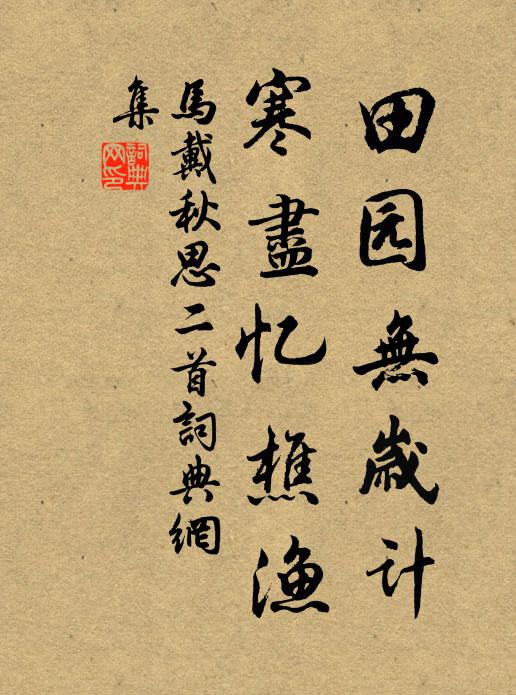 田园無歲计
寒盡忆樵渔
馬戴秋思二首詞典網
集
詞典网印